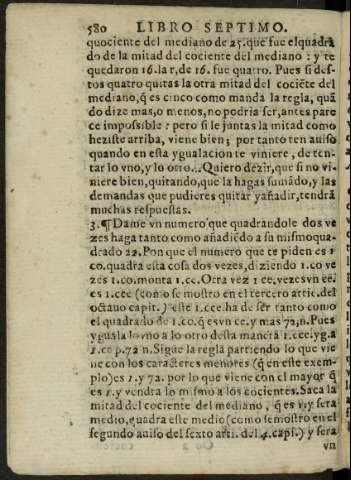 580 LIBRO SEPTIMO.
quociente del mediano de 25. que fue el quadra
do de la mitad del cociente del mediano : y te
quedaron 16. la r, de 16. fue quatro. Pues si des-
tos quatro quitas la otra mitad del cociēte del
mediano, q̄ es cinco como manda la regla, quā
do dize mas, o menos, no podria ser, antes pare
ce impossible : pero si le juntas la mitad como
heziste arriba, viene bien; por tanto ten auiso
quando en esta ygualacion te viniere, de ten-
tar lo vno, y lo otro... Quiero dezir, que si no vi-
niere bien, quitando, que la hagas sumādo, y las
demandas que pudieres quitar y añadir, tendrā
muchas respuestas.
3. ¶ Dame vn numero que quadrandole dos ve
zes haga tanto como añadiēdo a su mismo qua-
drado 22. Pon que el numero que te piden es 1
co. quadra esta cosa dos vezes, diziendo 1. co ve
zes 1. co. monta 1. ce. Otra vez 1 ce. vezes vn ce.
es 1. cce (como se mostro en el tercero artic. del
octauo capit.) este 1. cce. ha de ser tanto como
el quadrado de 1. co. q̄ es vn ce. y mas 72, n. Pues
yguala lo vno a lo otro desta manera 1. cce. yg. a
1. ce p. 72 n. Sigue la regla partiendo lo que vie
ne con los caracteres menores (q̄ en este exem-
plo) es 1. y 72. por lo que viene con el mayor q̄
es 1. y vendra lo mismo a los cocientes. Saca la
mitad del cociente del mediano, q̄ es 1. y sera
medio, quadra este medio (como se mostro en el
segundo auiso del sexto arti. del 4. capi.) y sera
vn